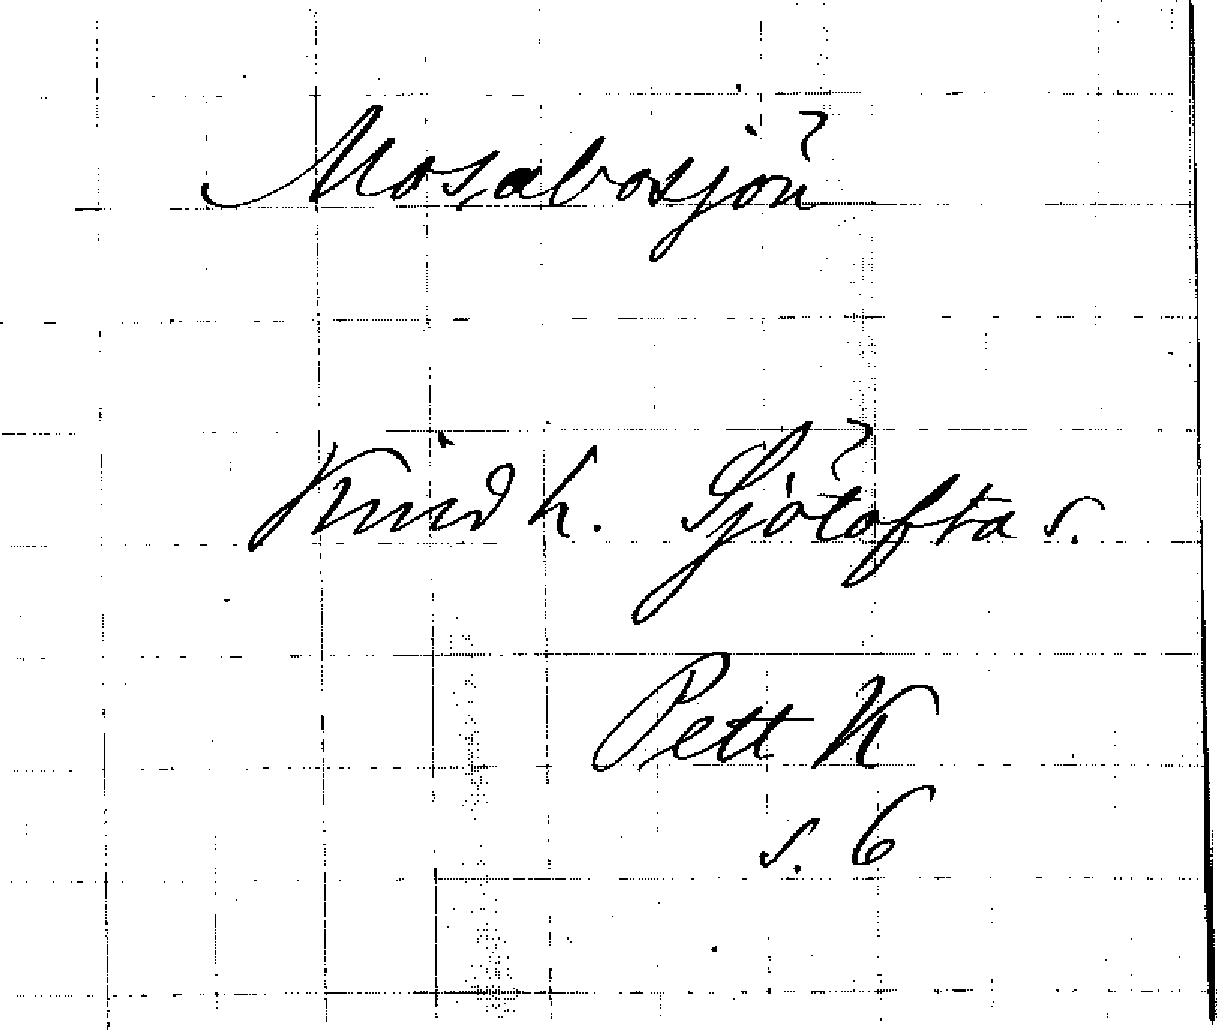 Mosabosjön
Kind h. Sjötofta s.
Pett K
s. 6